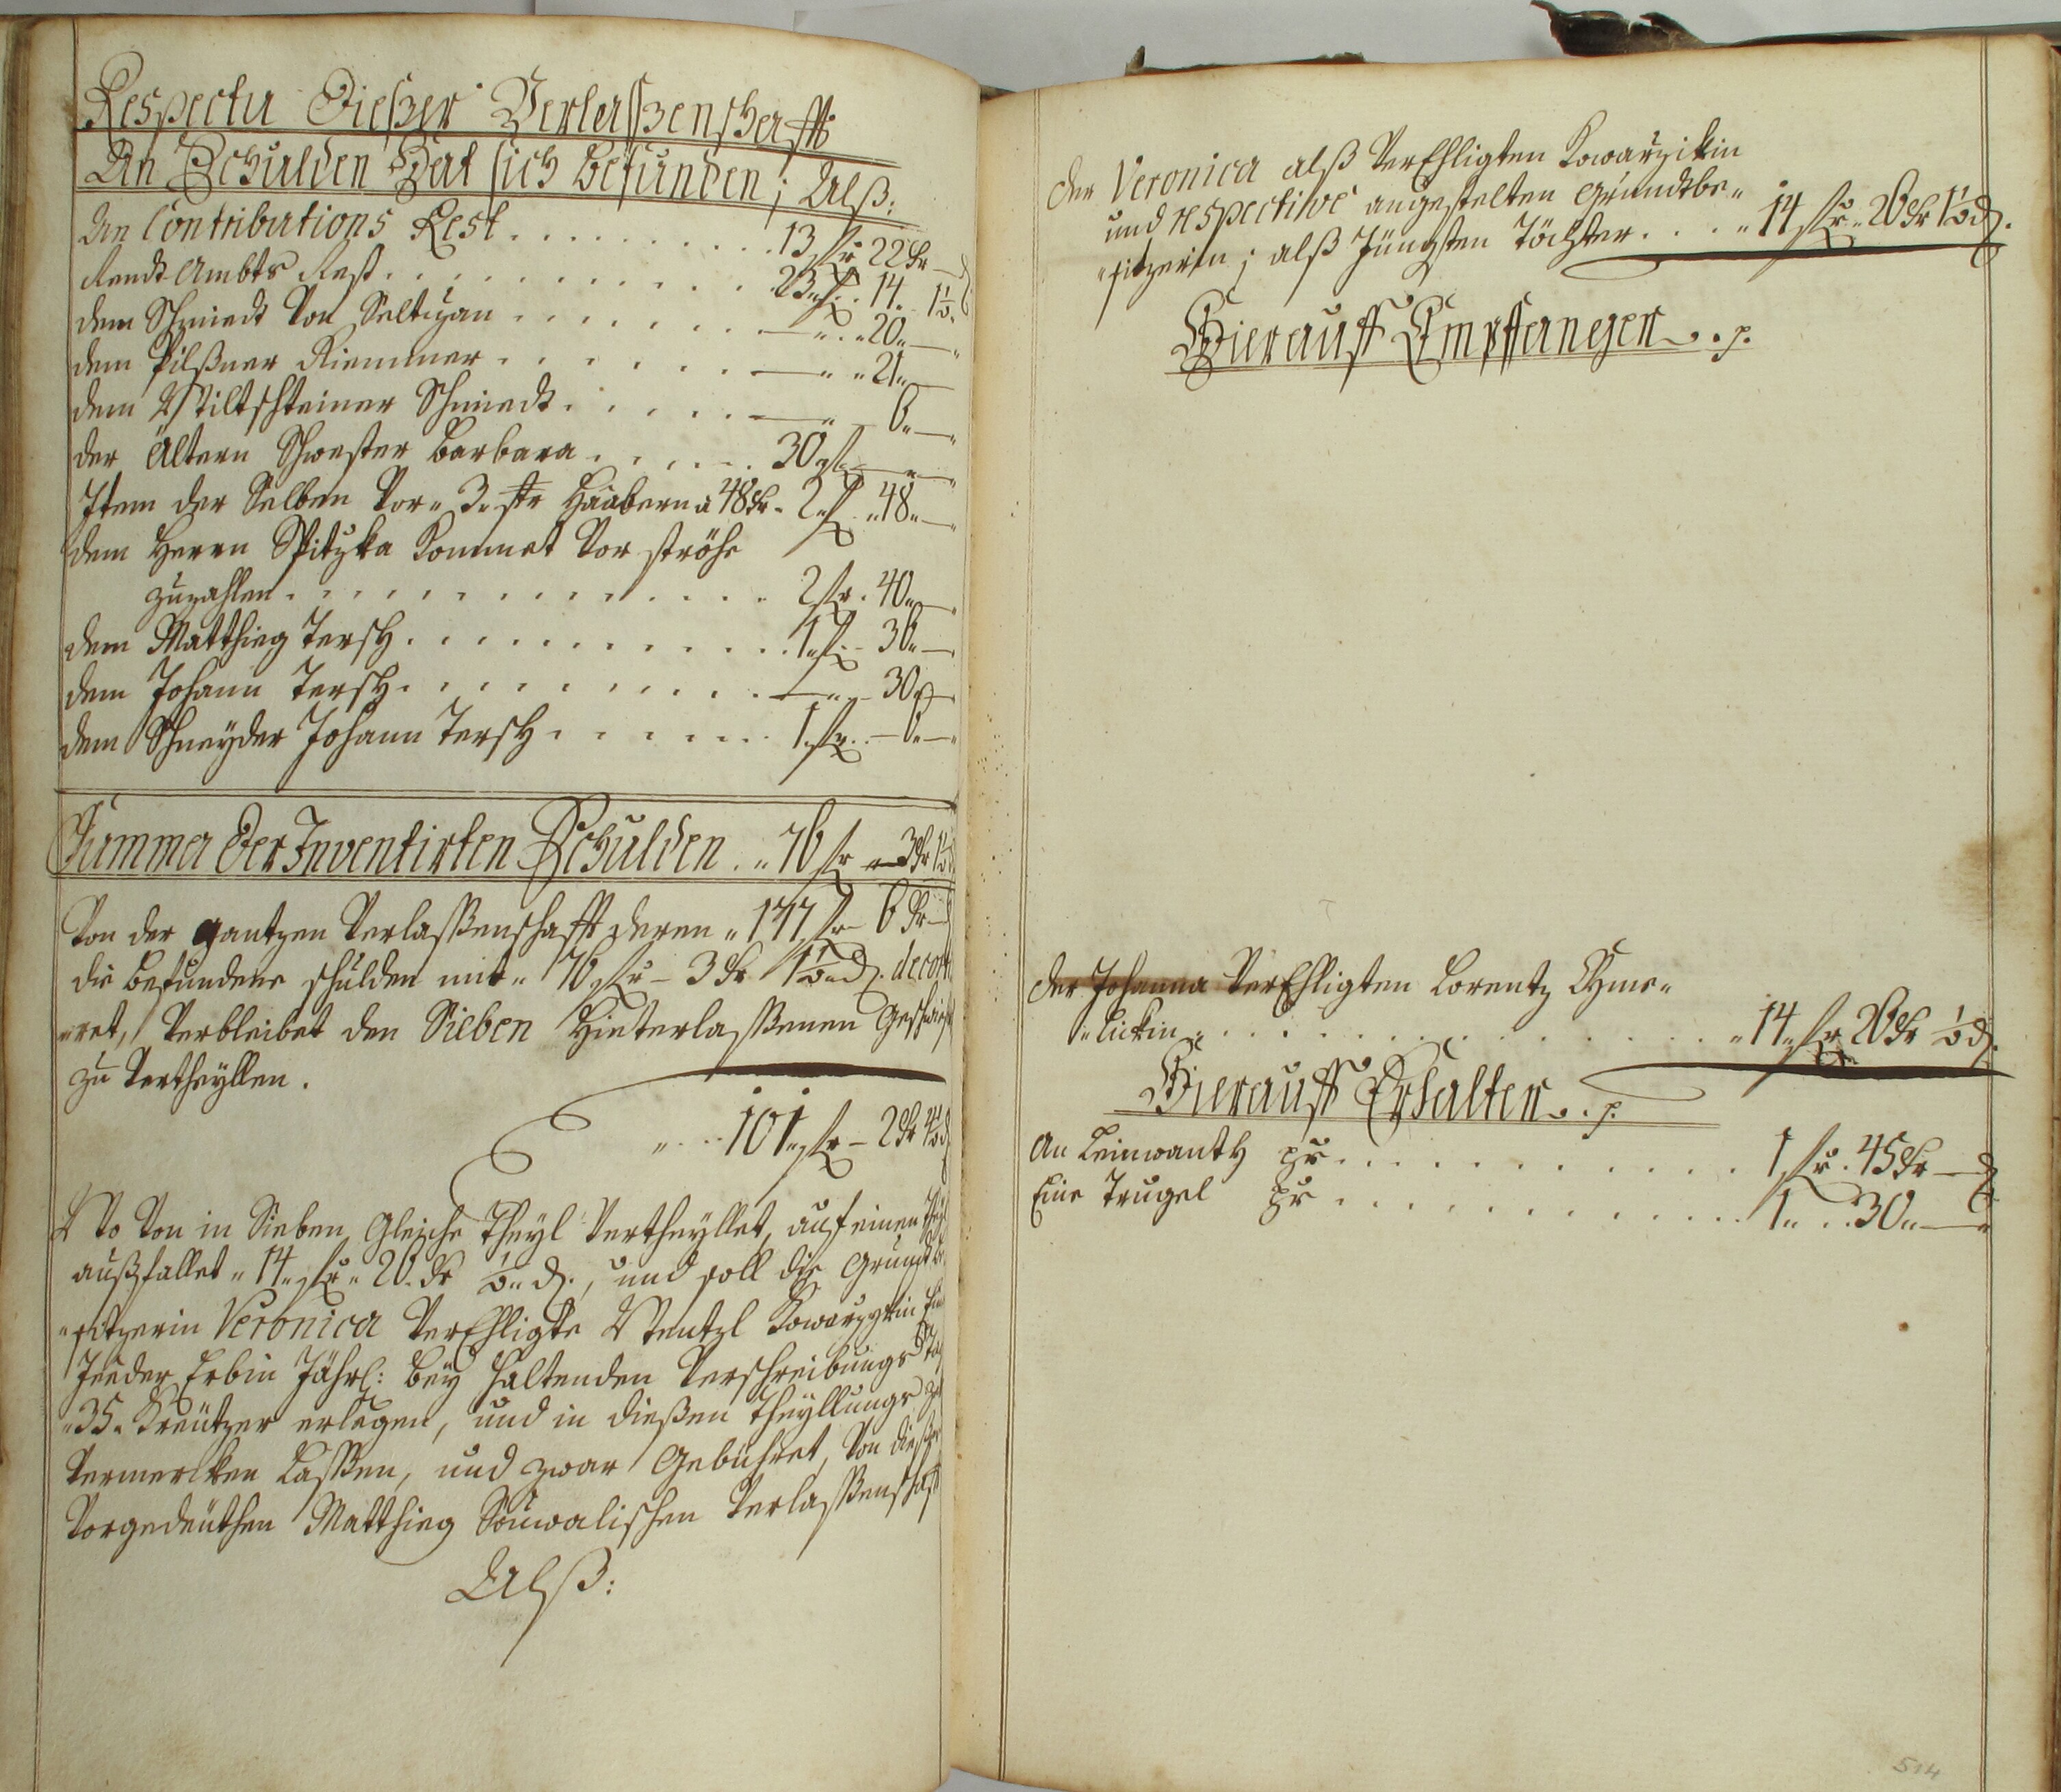 Respectu Dießer Verlaßenschafft
An Schulden Hat sich befunden; Alß:
An Contributions Rest . . . . . . . . . . 13 fr 22 kr —
Rendt Ambts Rest . . . . . . . . . . . 23 " f . 14 . 1½
dem Schmiedt Von . . . . . . . — " . " 20 " —
dem Pilßner Riemmer . . . . . . — " " 21 " —
dem Wiltschteiner Schmiedt . . . . . — " 6 " —
der Ältern Schwester Barbara . . . . . 30 " f — " —
Item der Selben Vor " 3 " str Haabern a 48 kr . 2 " f . " 48 " —
dem Herrn Spitzka Kommet Vor ströhe
zuzahlen . . . . . . . . . . . . . . 2 fr . 40 " —
dem Matthieg Tersch . . . . . . . . . . . 1 " f . - 36 " —
dem Johann Tersch . . . . . . . . . . — " - 30 " —
dem Schneyder Johann Tersch . . . . . . 1 . fr . - 6 " —
Summa Der Inventirten Schulden . " 76 fr " 3 kr 1½
Von der gantzen Verlaßenschafft deren " 177 fr - 6 kr —
die befundene schulden mit " 76 fr - 3 kr 1½ " d. decor
"ret, Verbleibet den Sieben Hinterlaßenen
zu Vertheyllen .
" . . . 101 " fr - 2 kr 4½ d
Wo Von in Sieben Gleiche Theyl Vertheyllet, auf einen Theyl
außfallet " 14 " fr " 26 . kr ½ " d., und soll die Grundtbe
"sitzerin Veronica VerEhligte Wentzl Kowarzikin
Jeeder Erbin Jährl: bey Haltenden Verschreibungs
"35 " Kreützer erlegen, und in dießen Theyllungs
Vermercken Laßen, und zwar Gebühret, Von dießer
Vorgedeüthen Matthieg Verlaßenschafft
Alß:
der Veronica alß VerEhligten Kowarzikin
und respective angestelten Grundtbe"
"sitzerin; alß Jüngsten Töchter . . . . " 14 fr " 26 kr 1½ d.
Hierauff Empfangen . . p.
der Johanna VerEhligten Lorentz
"lickin . . . . . . . . . . . . . " 14 " fr 26 kr ½ d.
Hierauff Erhalten . . p.
An Leinwanth pr . . . . . . . . . . . 1 fr . 45 kr — d
Eine Trugel pr . . . . . . . . . . . 1 " . . 30 " — "
514